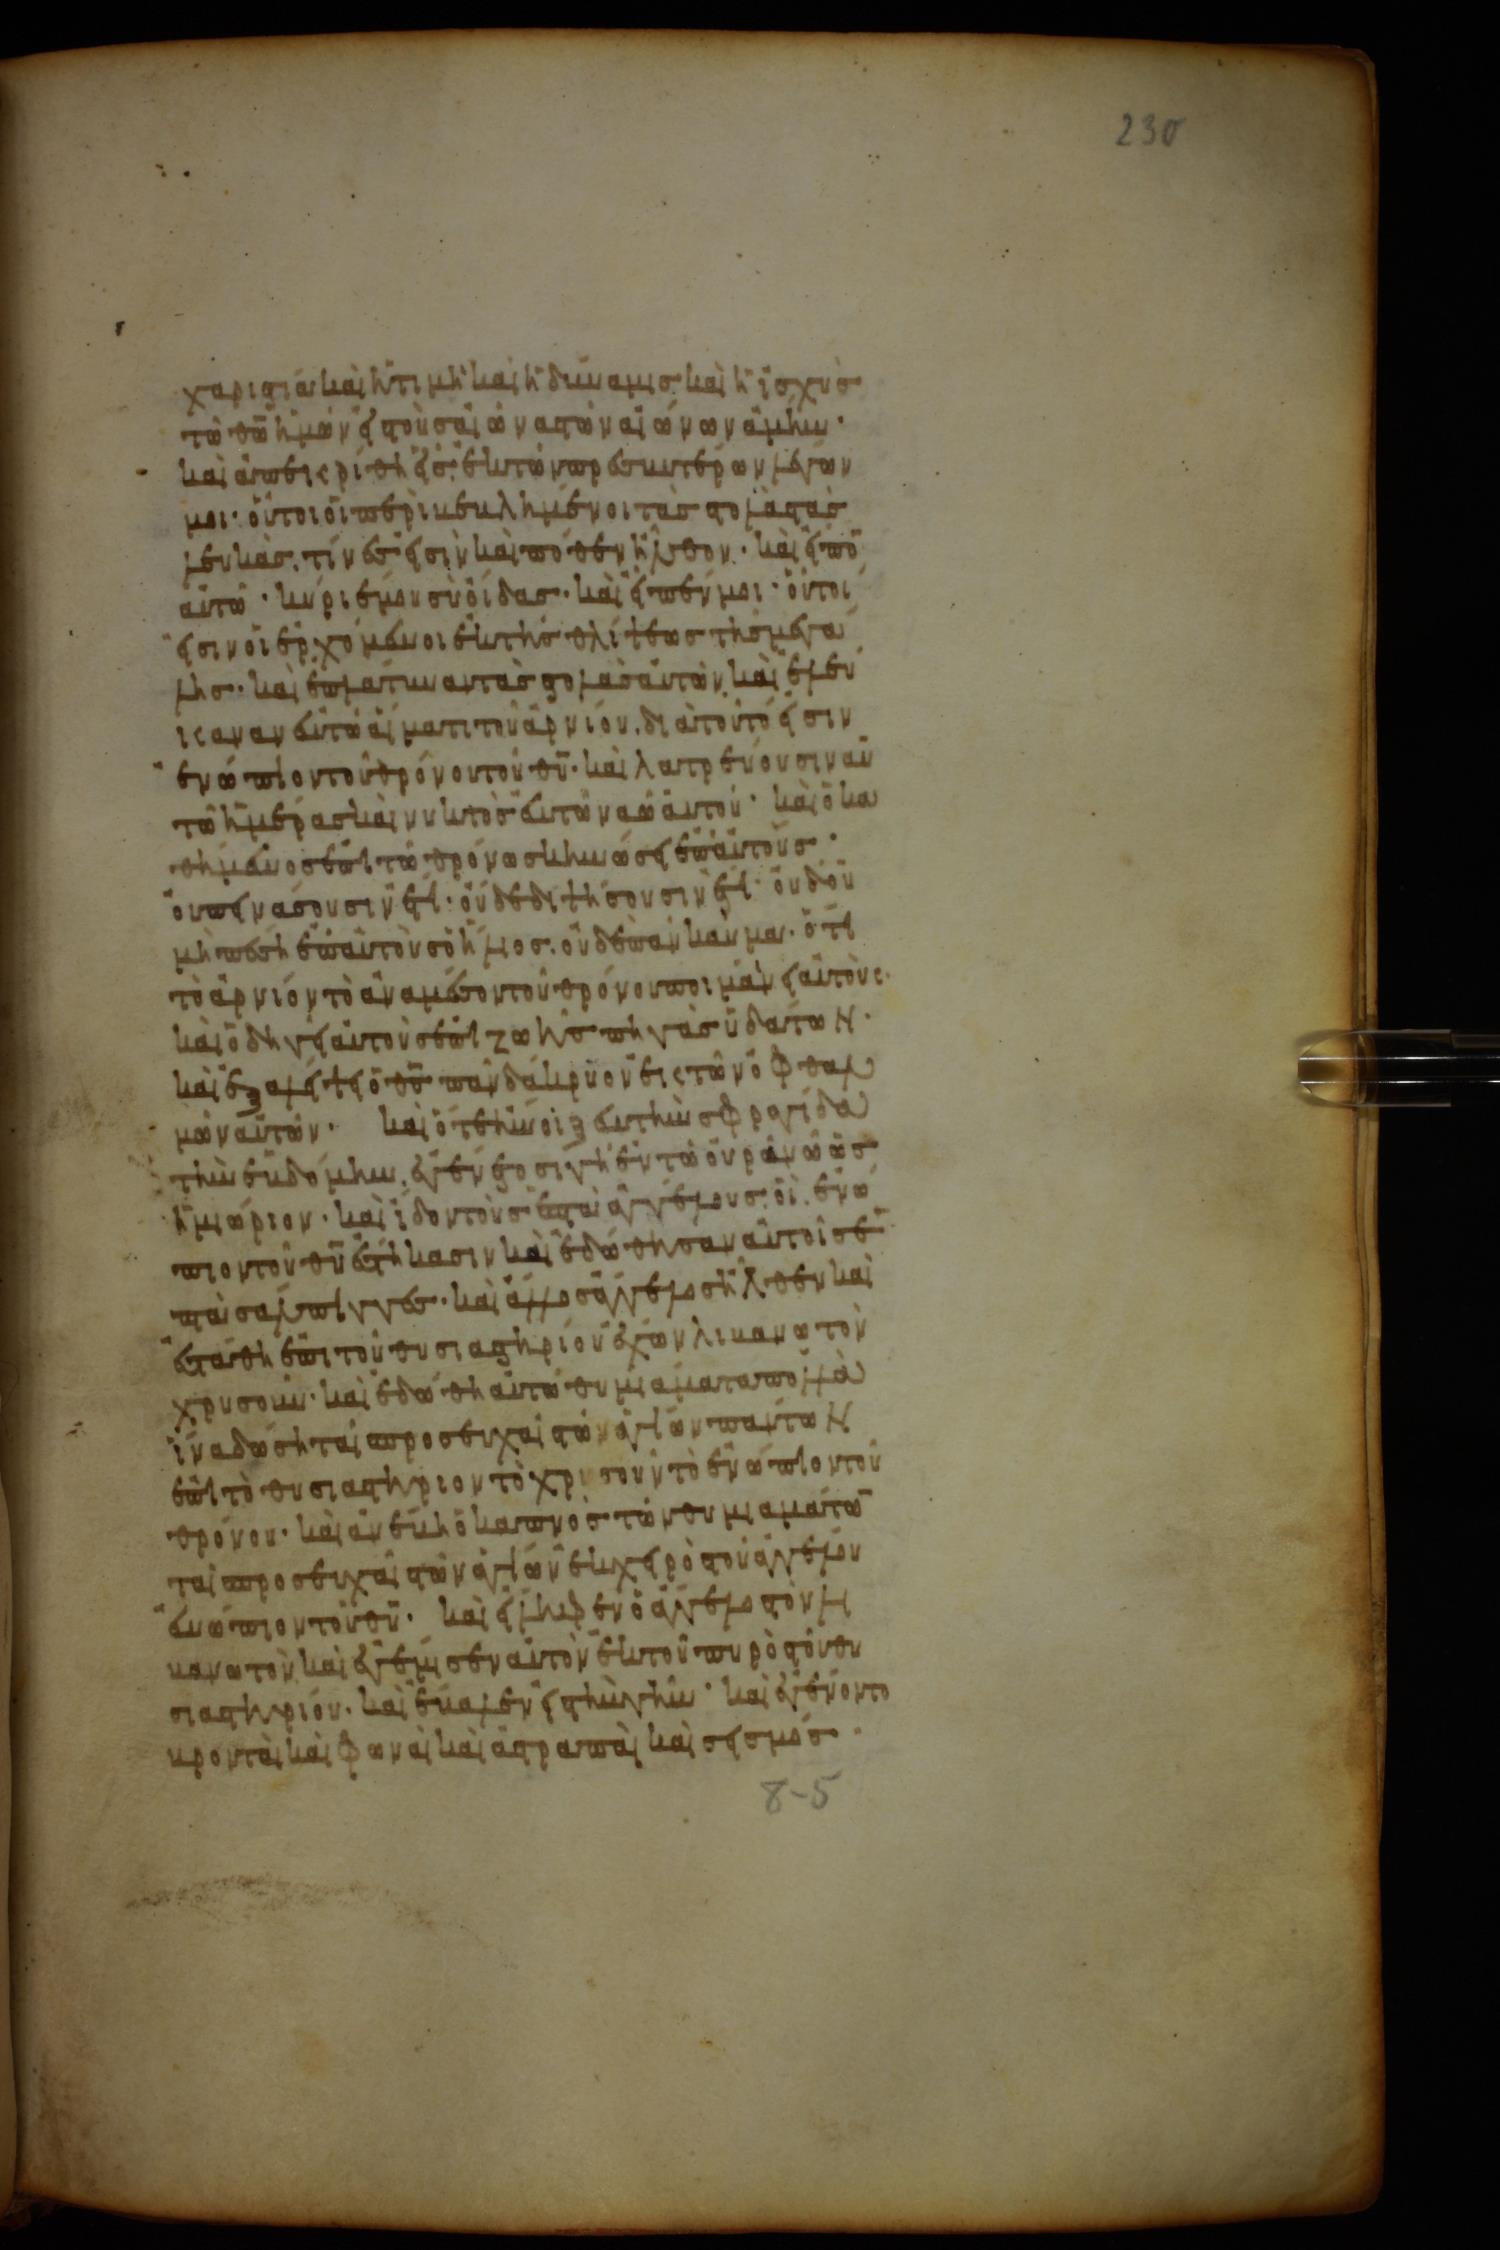 230
χαριστία καὶ ἡ τιμὴ καὶ ἡ δύναμισ καὶ ἡ ἰσχὺσ
τῶ θῶ ἡμῶν εἰς τοὺσ αἰῶνασ τῶν αἰώνων ἀμήν·
καὶ ἀπεκρίθη εἷσ ἐκ τῶν πρεσβυτέρων λέγων
μοι· οὗτοι οἱ περιβεβλημένοι τὰσ στολὰσ τὰσ
λευκὰσ, τίνεσ εἰσὶν καὶ πόθεν ἦλθον· καὶ εἶπον
αὐτῶ· κύριέ μου σὺ οἶδασ· καὶ εἶπέν μοι· οὗτοί
εἰσιν οἱ ἐρχόμενοι ἐκ τῆσ θλίψεωσ τῆσ μεγά
λησ· καὶ ἔπλατυναν τὰσ στολὰσ αὐτῶν καὶ ἐλεύ
καναν ἐν τῶ αἵματι τοῦ ἀρνίου, διὰ τοῦτό εἰσιν
ἐνώπιον τοῦ θρόνου τοῦ θῦ· καὶ λατρεύουσιν αὐ
τῶ ἡμέρασ καὶ νυκτὸσ ἐν τῶ ναῶ αὐτοῦ· καὶ ὁ κα
θήμενοσ ἐπὶ τῶ θρόνω σκηνώσει ἐπ αὐτούσ·
οὐ πεινάσουσιν ἔτι· οὐδὲ διψήσουσιν ἔτι· οὐδ οὐ
μὴ πέση ἐπ αὐτοὺσ ὁ ἥλιοσ, οὐδὲ πᾶν καῦμα· ὅτι
τὸ ἀρνίον τὸ ἀναμέσον τοῦ θρόνου ποιμανεῖ αὐτοὺς·
καὶ ὁδηγεῖ αὐτοὺσ ἐπὶ ζωῆσ πηγὰσ ὑδάτων·
καὶ ἐξαλείψει ὁ θσ πᾶν δάκρυον ἐκ τῶν ὀφθαλ
μῶν αὐτῶν· καὶ ὅτε ἤνοιξεν τὴν σφραγίδα
τὴν ἑβδόμην, ἐγένετο σιγὴ ἐν τῶ οὐρανῶ ὡσ
ἡμιώριον· καὶ ἴδον τοὺσ ἑπτὰ ἀγγέλουσ, οἳ ἐνώ
πιον τοῦ θῦ ἑστήκασιν καὶ ἐδόθησαν αὐτοῖσ ἑ
πτὰ σάλπιγγεσ· καὶ ἄλλοσ ἄγγελοσ ἦλθεν καὶ
ἐστάθη ἐπὶ τοῦ θυσιαστηρίου ἔχων λιβανωτὸν
χρυσοῦν· καὶ ἐδώθη αὐτῶ θυμιάματα πολλὰ
ἵνα δώση ταῖ προσευχαῖ τῶν ἁγίων πάντων
ἐπὶ τὸ θυσιαστήριον τὸ χρυσοῦν τὸ ἐνώπιον τοῦ
θρόνου· καὶ ἀνέβη ὁ καπνὸσ τῶν θυμιαμάτω
ταῖ προσευχαῖ τῶν ἁγίων ἐκ χειρὸσ τοῦ ἀγγέλου
ἐνώπιον τοῦ θῦ· καὶ εἴληφεν ὁ ἄγγελοσ τὸν λι
βανωτὸν καὶ ἐγέμισεν αὐτὸν ἐκ τοῦ πυρὸσ τοῦ θυ
σιαστηρίου· καὶ ἔβαλεν εἰσ τὴν γῆν· καὶ ἐγένοντο
βρονταὶ καὶ φωναὶ καὶ ἀστραπαὶ καὶ σεισμόσ·
8-5